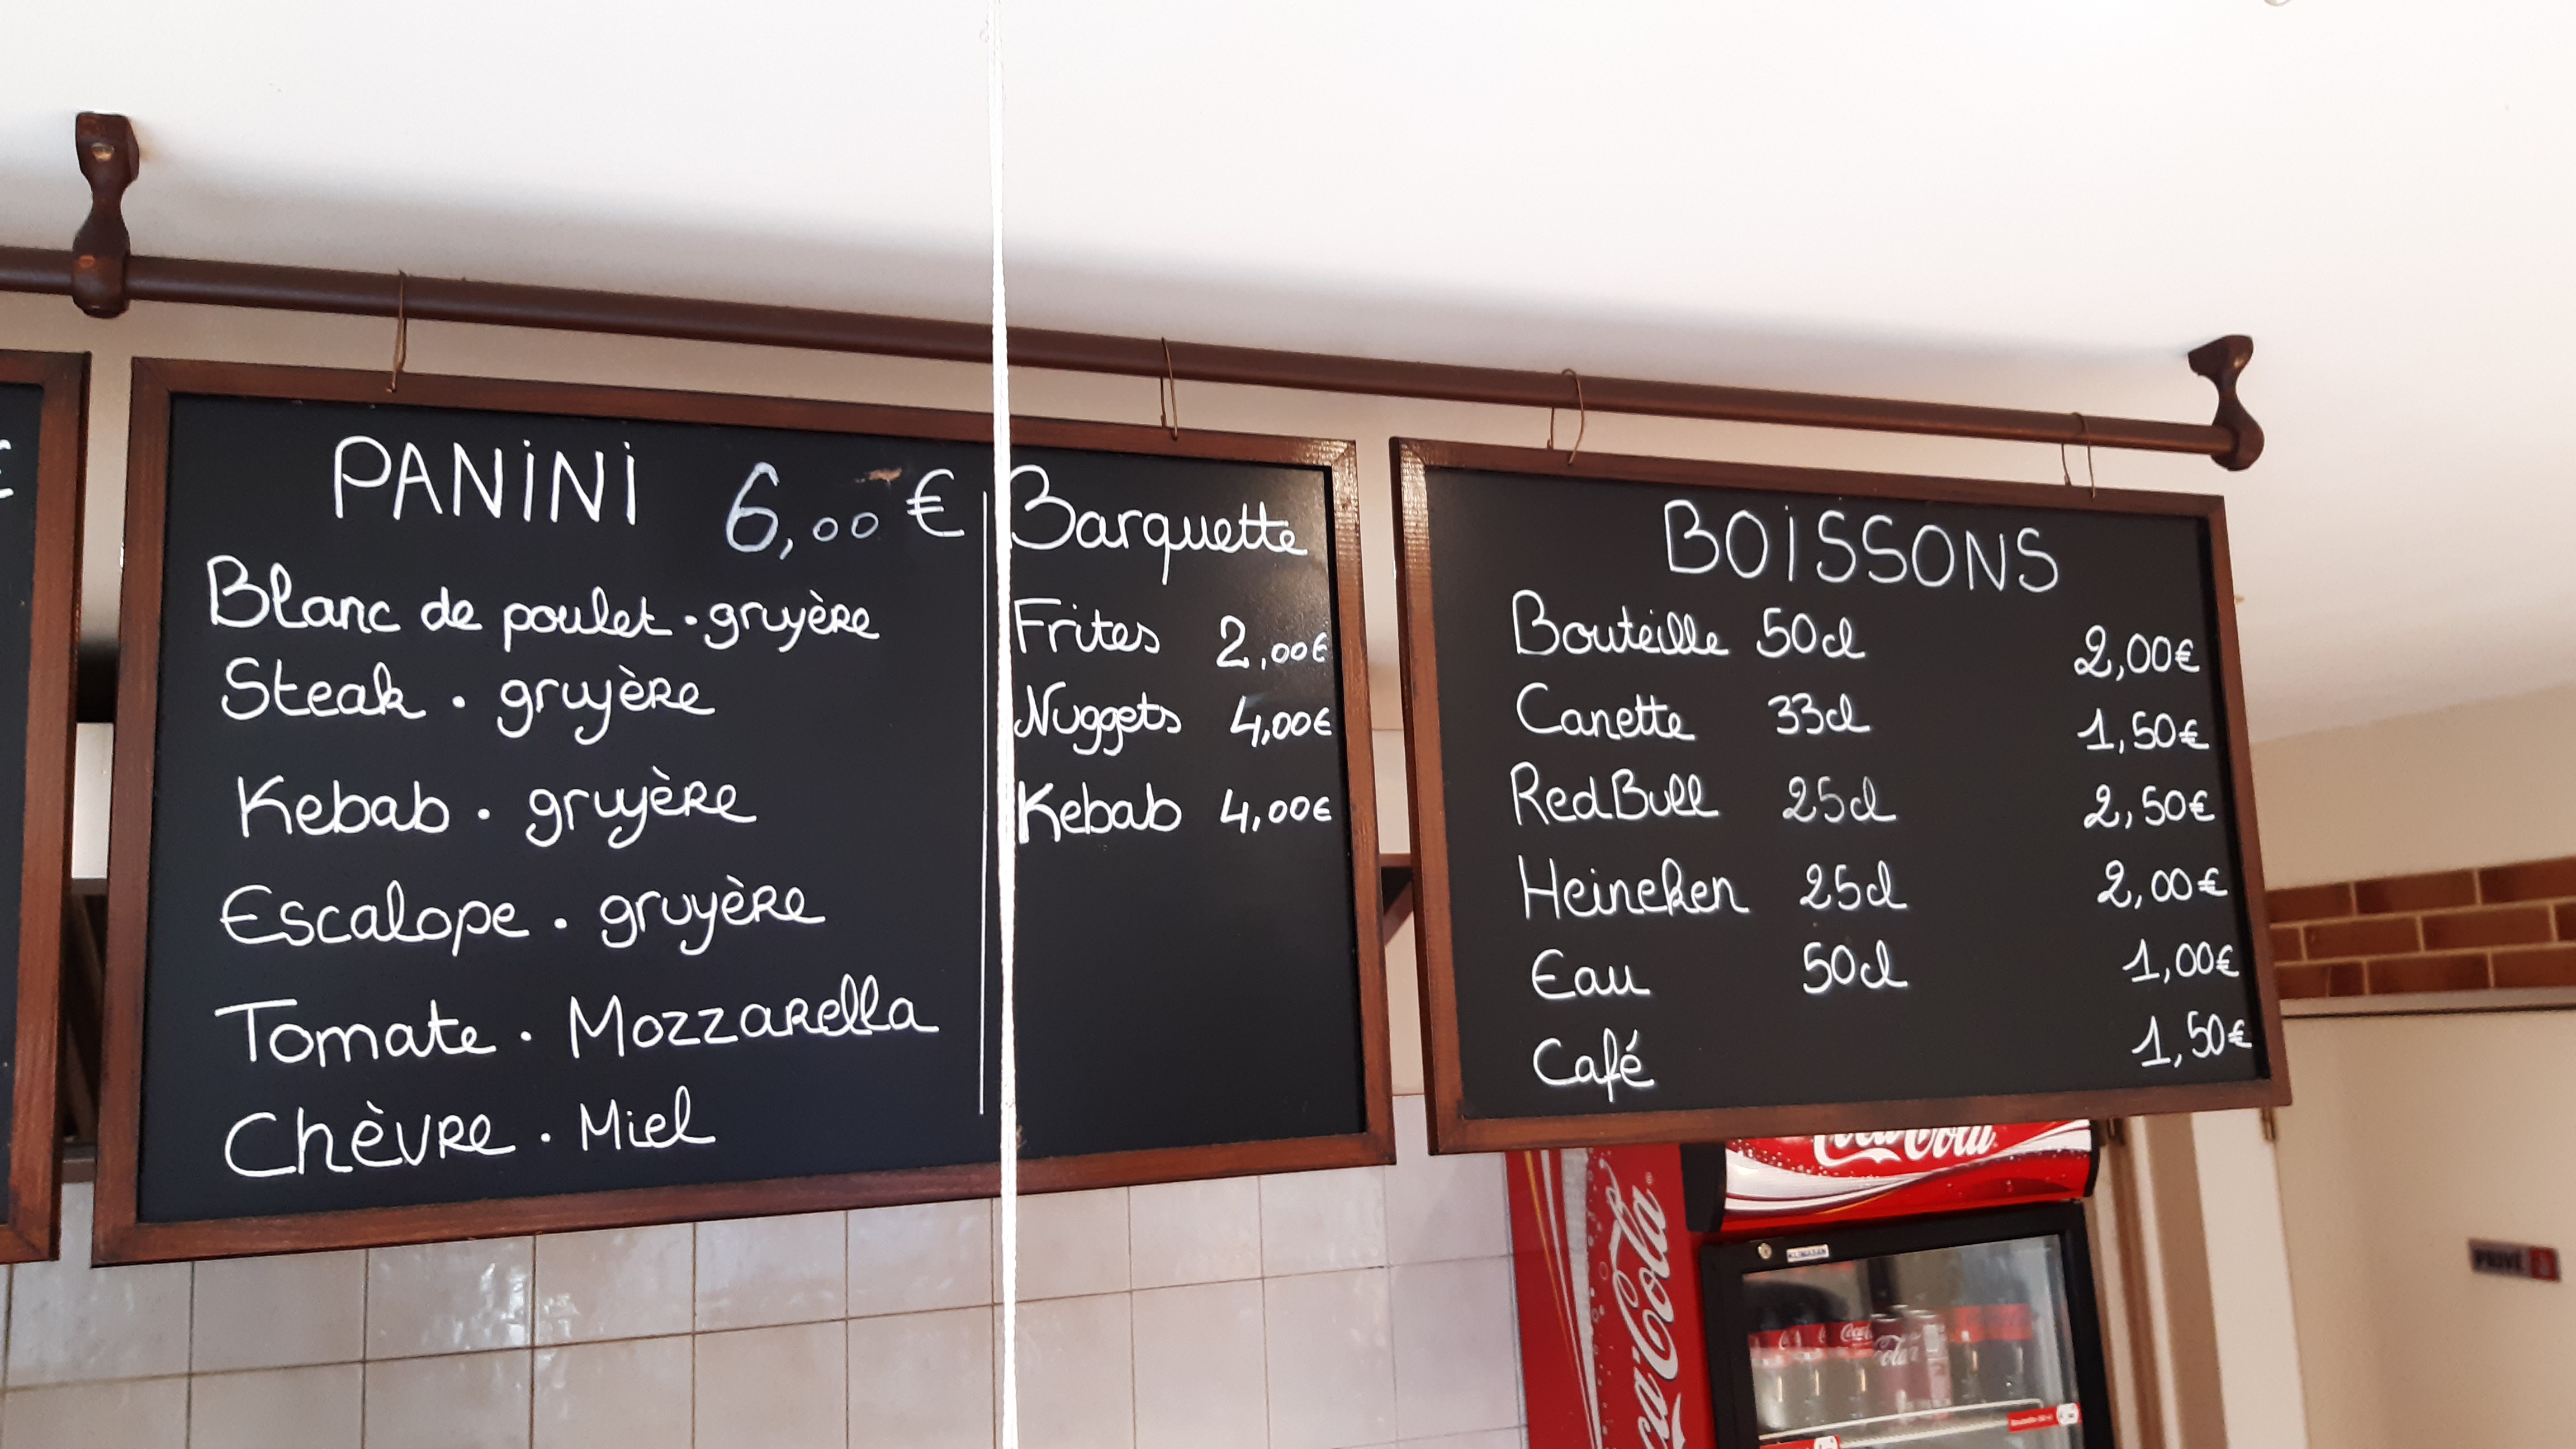 €
PANiNi 6,00 €
Blanc de poulet · gruyère
Steak · gruyère
Kebab · gruyère
Escalope · gruyère
Tomate · Mozzarella
Chèvre · Miel
Barquette
Frites 2,00€
Nuggets 4,00€
Kebab 4,00€
BOiSSONS
Bouteille 50cl 2,00€
Canette 33cl 1,50€
RedBull 25cl 2,50€
Heineken 25cl 2,00€
Eau 50cl 1,00€
Café 1,50€
Coca-Cola
Coca-Cola
KLIMASAN
PRIVÉ